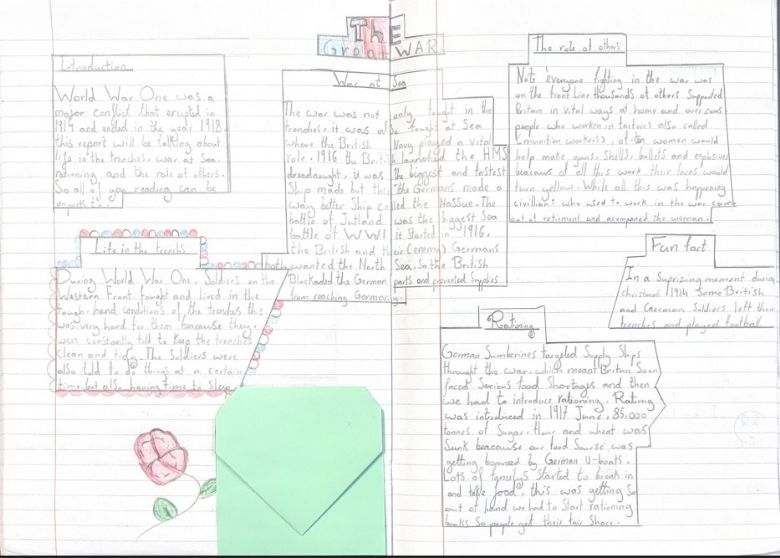 The
Great WAR
Introduction
World War One was a
major conflict that erupted in
1914 and ended in the year 1918
this report will be talking about
life in the trenches, war at sea,
rationing and the role of others.
So all of you reading can be
experts.
Life in the trenchs
During World War One, Soldiers on the
Western Front fought and lived in the
tough hard conditions of the trenches this
was very hard for them because they
were constantly told to keep the trenches
clean and tidy. The Soldiers were
also told to do things at a certain
time but also having time to sleep
War at Sea
The war was not only fought in the
trenches, it was also fought at Sea
where the British Navy played a vital
role. 1916 the British launched the HMS
dreadnought, it was the biggest and fastest
Ship made but this the Germans made a
way better Ship called the Nassue. The
battle of Jutland was the biggest Sea
battle of WW1 it started in 1916,
the British and their (enemy) Germans
both wanted the North Sea, so the British
Blockaded the German ports and prevented Supplies
from reaching Germany.
The role of others
Not everyone fighting in the war was
on the front line thousands of others Supported
Britain in vital ways at home and overseas
people who worked in factories also called
(munition workers), often women would
help make guns, Shells, bullets and explosives
beacuas of all this work their faces would
turn yellow. While all this was happening
civillians who used to work in the war came
out of retirment and acompaned the woman.
Fun fact
In a Suprizing moment during
christmas 1914 Some British
and German Soldiers left their
trenches and played football
Rationing
German Sumberines targeted Supply Ships
through the war, which meant Britain Soon
faced Serious food Shortages and then
we had to introduce rationing. Rationing
was introduced in 1917 June, 85.000
tonnes of Sugar, flour and wheat was
Sunk beacause our food Sourse was
getting bommed by German U-boats.
Lots of familys Started to break in
and take food, this was getting So
out of hand we had to Start rationing
books So people get their fair Share.